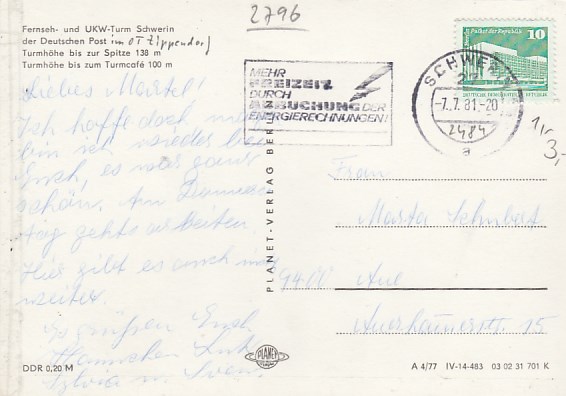 2796
Fernseh- und UKW-Turm Schwerin
der Deutschen Post im OT Zippendorf
Turmhöhe bis zur Spitze 138 m
Turmhöhe bis zum Turmcafé 100 m
Palast der Republik 10
DEUTSCHE DEMOKRATISCHE REPUBLIK
MEHR
FREIZEIT
DURCH
ABBUCHUNG DER
ENERGIERECHNUNGEN!
SCHWERIN
27
-7.7.81.-20
2484
a
1,-
3,-
Liebes Martel!
Ich hoffe doch
bin ich wieder bei
Euch, es war ganz
schön. Am Donners
tag gehts arbeiten.
Hier gibt es auch
weiter.
Es grüßen Euch
Hannchen
Sylvia u. Sven
Frau
Marta Schubert
9400 Aue
Auerhäuserstr 15
PLANET-VERLAG BERLIN
PLANET
DDR 0,20 M
A 4/77 IV-14-483 03 02 31 701 K